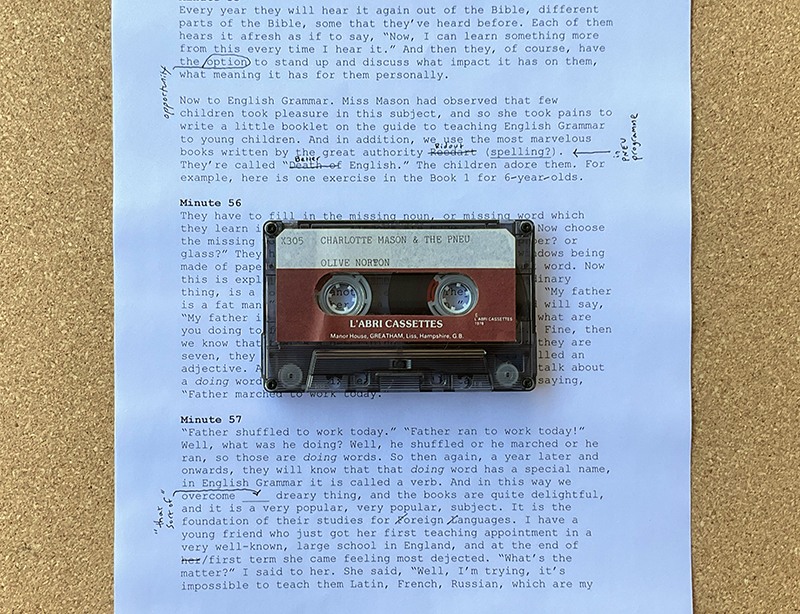 Every year they will hear it again out of the Bible, different
parts of the Bible, some that they've heard before. Each of them
hears it afresh as if to say, "Now, I can learn something more
from this every time I hear it." And then they, of course, have
the option to stand up and discuss what impact it has on them,
opportunity
what meaning it has for them personally.
Now to English Grammar. Miss Mason had observed that few
children took pleasure in this subject, and so she took pains to
write a little booklet on the guide to teaching English Grammar
to young children. And in addition, we use the most marvelous
Ridout
books written by the great authority Reodart (spelling?).
in PNEU programme
Better
They're called "Death of English." The children adore them. For
example, here is one exercise in the Book 1 for 6-year-olds.
Minute 56
They have to fill in the missing noun, or missing word which
they learn i
Now choose
the missing
per? or
glass?" They
ndows being
made of pape
word. Now
this is expl
dinary
thing, is a
"My father
is a fat man
will say,
"My father i
what are
you doing to
Fine, then
we know that
they are
seven, they
lled an
adjective. A
talk about
a doing word
saying,
"Father marched to work today."
X305 CHARLOTTE MASON & THE PNEU
OLIVE NORTON
L'ABRI CASSETTES
L'ABRI CASSETTES
1978
Manor House, GREATHAM, Liss, Hampshire, G.B.
Minute 57
"Father shuffled to work today." "Father ran to work today!"
Well, what was he doing? Well, he shuffled or he marched or he
ran, so those are doing words. So then again, a year later and
onwards, they will know that that doing word has a special name,
in English Grammar it is called a verb. And in this way we
"that sort of"
overcome ___ dreary thing, and the books are quite delightful,
and it is a very popular, very popular, subject. It is the
foundation of their studies for foreign languages. I have a
young friend who just got her first teaching appointment in a
very well-known, large school in England, and at the end of
her/first term she came feeling most dejected. "What's the
matter?" I said to her. She said, "Well, I'm trying, it's
impossible to teach them Latin, French, Russian, which are my